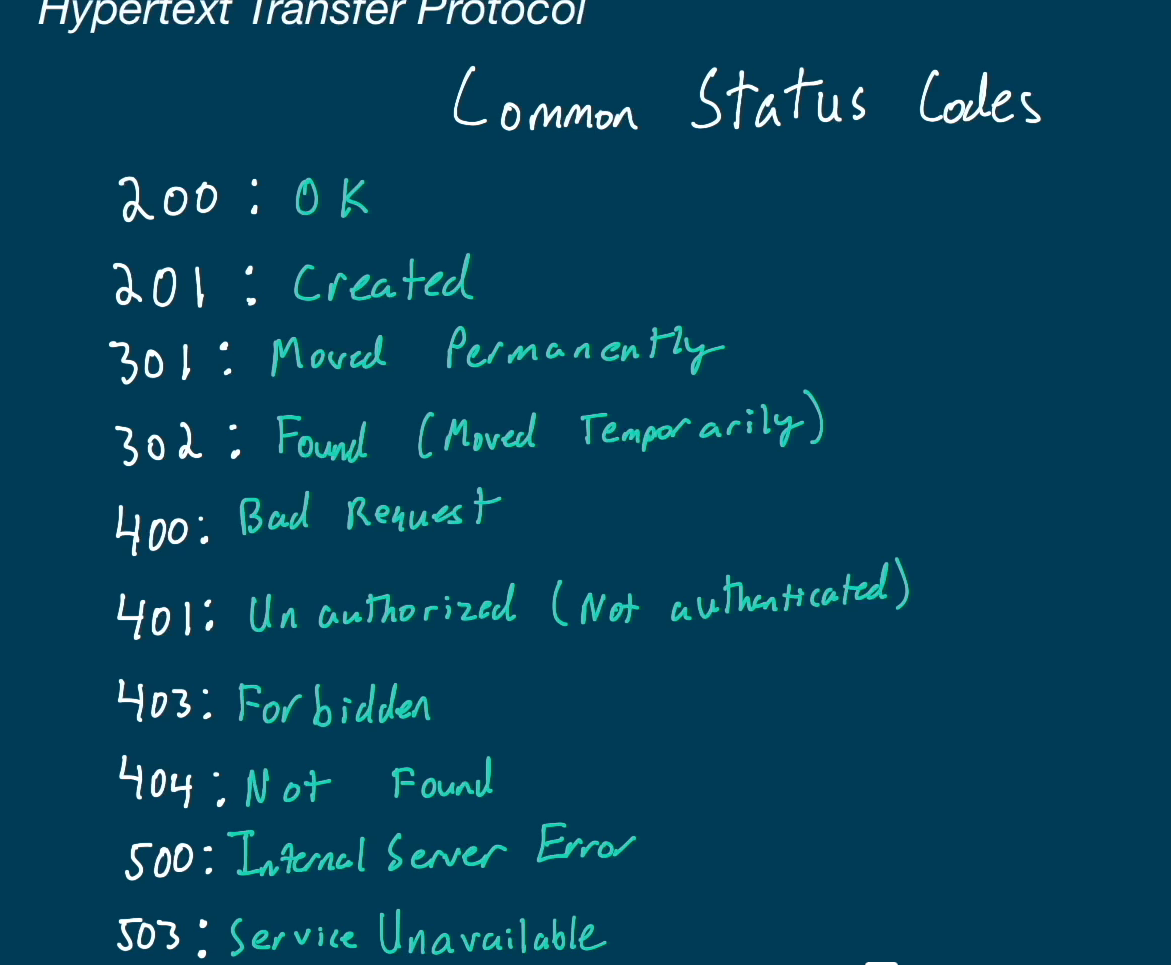 Hypertext Transfer Protocol
Common Status Codes
200: OK
201: Created
301: Moved Permanently
302: Found (Moved Temporarily)
400: Bad Request
401: Unauthorized (Not authenticated)
403: Forbidden
404: Not Found
500: Internal Server Error
503: Service Unavailable